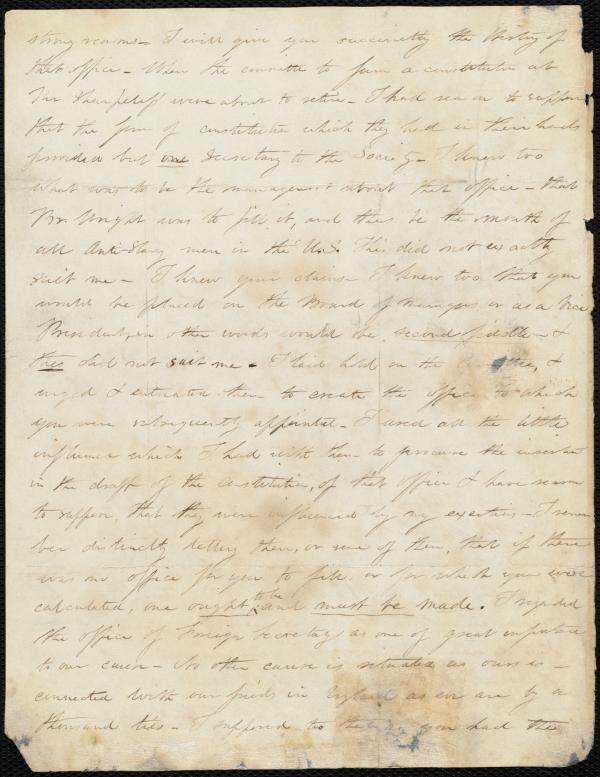 strong reasons - I will give you succinctly the history of
that office - When the committe to form a constitution at
were about to retire - I had reason to suppose
that the form of constitution which they had in their hands
provided but one Secretary to the Society - I knew too
what was to be the management about that office - that
Br. Wright was to fill it, and thus be the mouth of
all Anti-Slavy men in the U.S. This did not exactly
suit me - I knew your claims I knew too that you
would be placed on the Board of Managers or as a Vice
President, in other words would be, second fiddle - &
this did not suit me - I laid hold on the &
urged & entreated them to create the office to which
you were subsequently appointed - I used all the little
influence which I had with them to procure the insertion
in the draft of the Constitution, of that office & have reason
to suppose, that they were influenced by my exertions - I remem
ber distinctly telling them, or some of them, that if there
was no office for you to fill or for which you were
calculated, one ought to be and must be made. I regarded
the office of Foreign Secretary as one of great importance
to our cause - No other cause is situated as ours is -
connected with our friends in England as we are by a
thousand ties - I supposed too you had the